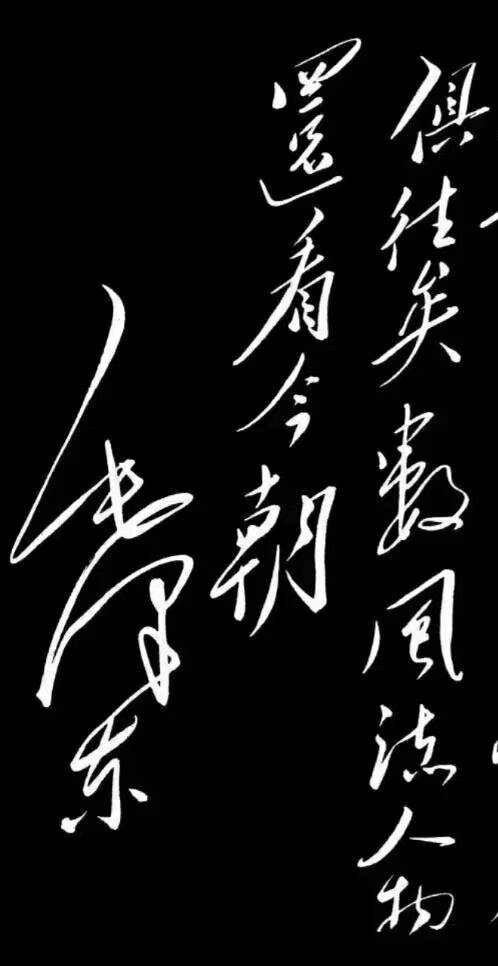 俱往矣數風流人物
還看今朝
毛澤东